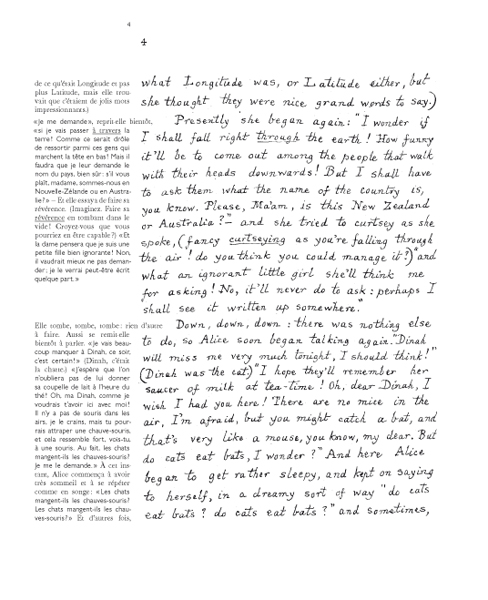 4
4
de ce qu'était Longitude et pas
plus Latitude, mais elle trou-
vait que c'étaient de jolis mots
impressionnants.)
«Je me demande», reprit-elle bientôt,
«si je vais passer à travers la
terre! Comme ce serait drôle
de ressortir parmi ces gens qui
marchent la tête en bas! Mais il
faudra que je leur demande le
nom du pays, bien sûr: s'il vous
plaît, madame, sommes-nous en
Nouvelle-Zélande ou en Austra-
lie?» – Et elle essaya de faire sa
révérence. (Imaginez. Faire sa
révérence en tombant dans le
vide! Croyez-vous que vous
pourriez en être capable?) «Et
la dame pensera que je suis une
petite fille bien ignorante! Non,
il vaudrait mieux ne pas deman-
der; je le verrai peut-être écrit
quelque part.»
Elle tombe, tombe, tombe: rien d'autre
à faire. Aussi se remit-elle
bientôt à parler. «Je vais beau-
coup manquer à Dinah, ce soir,
c'est certain!» (Dinah, c'était
la chatte.) «J'espère que l'on
n'oubliera pas de lui donner
sa coupelle de lait à l'heure du
thé? Oh, ma Dinah, comme je
voudrais t'avoir ici avec moi!
Il n'y a pas de souris dans les
airs, je le crains, mais tu pour-
rais attraper une chauve-souris,
et cela ressemble fort, vois-tu,
à une souris. Au fait, les chats
mangent-ils les chauves-souris?
Je me le demande.» À cet ins-
tant, Alice commença à avoir
très sommeil et à se répéter
comme en songe: «Les chats
mangent-ils les chauves-souris?
Les chats mangent-ils les chau-
ves-souris?» Et d'autres fois,
what Longitude was, or Latitude either, but
she thought they were nice grand words to say.)
Presently she began again: "I wonder if
I shall fall right through the earth! How funny
it'll be to come out among the people that walk
with their heads downwards! But I shall have
to ask them what the name of the country is,
you know. Please, Ma'am, is this New Zealand
or Australia?"— and she tried to curtsey as she
spoke, (fancy curtseying as you're falling through
the air! do you think you could manage it?) "and
what an ignorant little girl she'll think me
for asking! No, it'll never do to ask: perhaps I
shall see it written up somewhere."
Down, down, down: there was nothing else
to do, so Alice soon began talking again. "Dinah
will miss me very much tonight, I should think!"
(Dinah was the cat) "I hope they'll remember her
saucer of milk at tea-time! Oh, dear Dinah, I
wish I had you here! There are no mice in the
air, I'm afraid, but you might catch a bat, and
that's very like a mouse, you know, my dear. But
do cats eat bats, I wonder?" And here Alice
began to get rather sleepy, and kept on saying
to herself, in a dreamy sort of way "do cats
eat bats? do cats eat bats?" and sometimes,